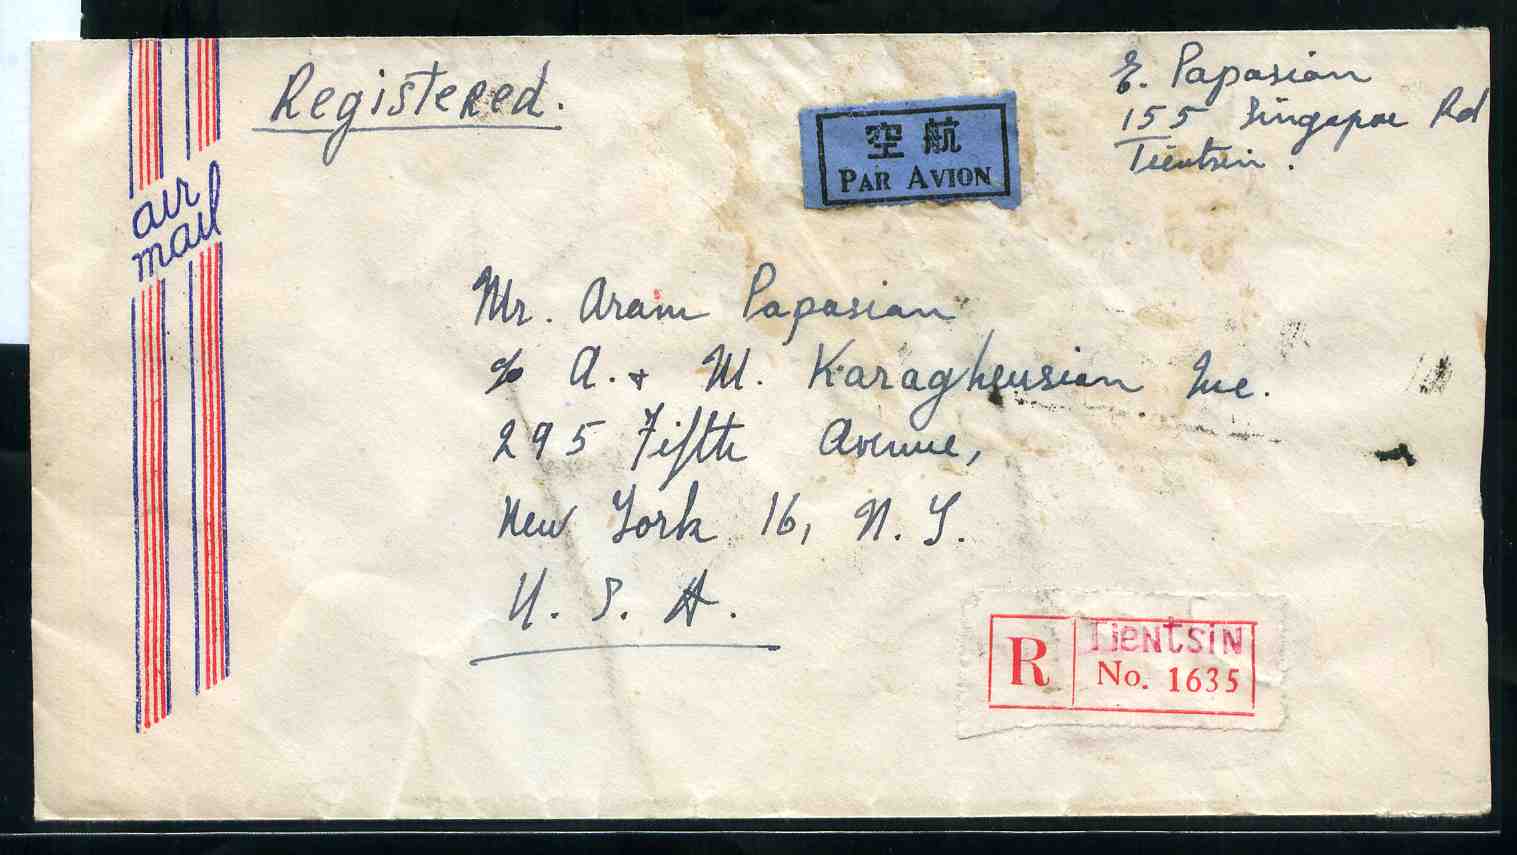 Registered.
air
mail
空航
PAR AVION
E. Papasian
155 Singapore Rd
Tientsin.
Mr. Aram Papasian
c/o A. + M. Karagheusian Inc.
295 Fifth Avenue,
New York 16, N. Y.
U. S. A.
R TIENTSIN
No. 1635